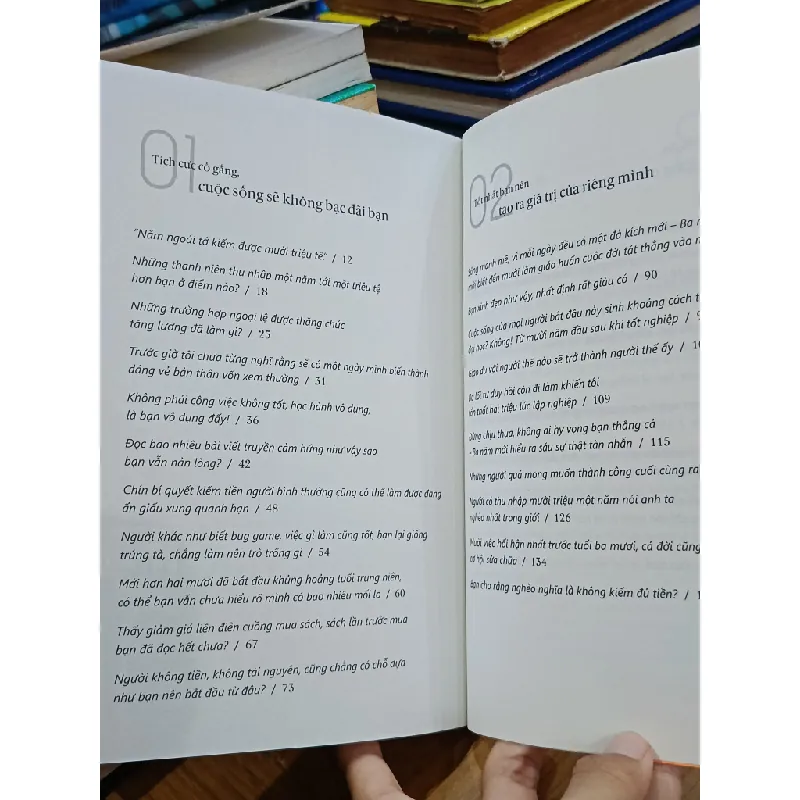 01
Tích cực cố gắng,
cuộc sống sẽ không bạc đãi bạn
"Năm ngoái tớ kiếm được mười triệu tệ" / 12
Những thanh niên thu nhập một năm tới một triệu tệ
hơn bạn ở điểm nào? / 18
Những trường hợp ngoại lệ được thăng chức
tăng lương đã làm gì? / 25
Trước giờ tôi chưa từng nghĩ rằng sẽ có một ngày mình biến thành
dáng vẻ bản thân vốn xem thường / 31
Không phải công việc không tốt, học hành vô dụng,
là bạn vô dụng đấy! / 36
Đọc bao nhiêu bài viết truyền cảm hứng như vậy sao
bạn vẫn nản lòng? / 42
Chín bí quyết kiếm tiền người bình thường cũng có thể làm được đang
ẩn giấu xung quanh bạn / 48
Người khác như biết bug game, việc gì làm cũng tốt, bạn lại giống
trúng tà, chẳng làm nên trò trống gì / 54
Mới hơn hai mươi đã bắt đầu khủng hoảng tuổi trung niên,
có thể bạn vẫn chưa hiểu rõ mình có bao nhiêu mối lo / 60
Thấy giảm giá liền điên cuồng mua sách, sách lần trước mua
bạn đã đọc hết chưa? / 67
Người không tiền, không tài nguyên, cũng chẳng có chỗ dựa
như bạn nên bắt đầu từ đâu? / 73
02
nhất bạn nên
tạo ra giá trị của riêng mình
mạnh mẽ, vì mỗi ngày đều có một đả kích mới – Ba
biết đến mười làm giáo huấn cuộc đời tát thẳng vào
xinh đẹp như vậy, nhất định rất giàu có / 90
Cuộc sống của mọi người bắt đầu nảy sinh khoảng cách
đại học? Không! Từ mười năm đầu sau khi tốt nghiệp /
với người thế nào sẽ trở thành người thế ấy /
lối tư duy hồi còn đi làm khiến tôi
triệu lúc lập nghiệp / 109
Đừng chịu thua, không ai hy vọng bạn thắng cả
năm mới hiểu ra sáu sự thật tàn nhẫn / 115
Những người quá mong muốn thành công cuối cùng ra
Người có thu nhập mười triệu một năm nói anh ta
nghèo nhất trong giới / 126
Mười việc hối hận nhất trước tuổi ba mươi, cả đời cũng
cơ hội sửa chữa / 134
Bạn cho rằng nghèo nghĩa là không kiếm đủ tiền? /